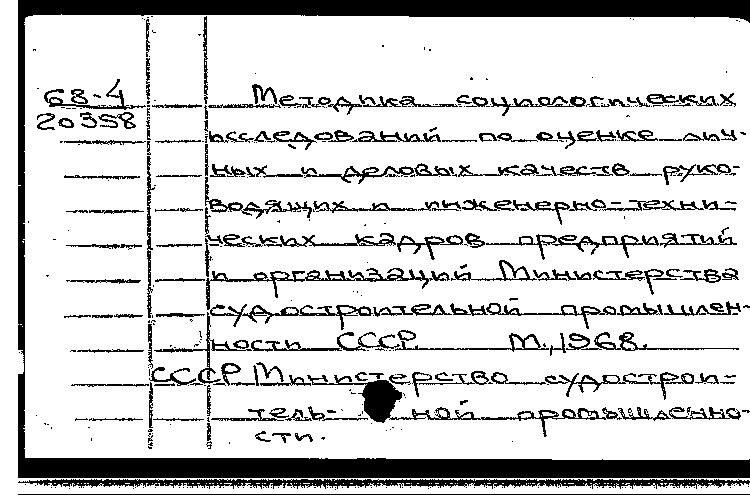 68-4 Методика социологических
20358 исследований по оценке лич-
ных и деловых качеств руко-
водящих и инженерно-техни-
ческих кадров предприятий
и организаций Министерства
судостроительной промышлен-
ности СССР. М., 1968.
СССР Министерство судострои-
тель- ной промышленно-
сти.